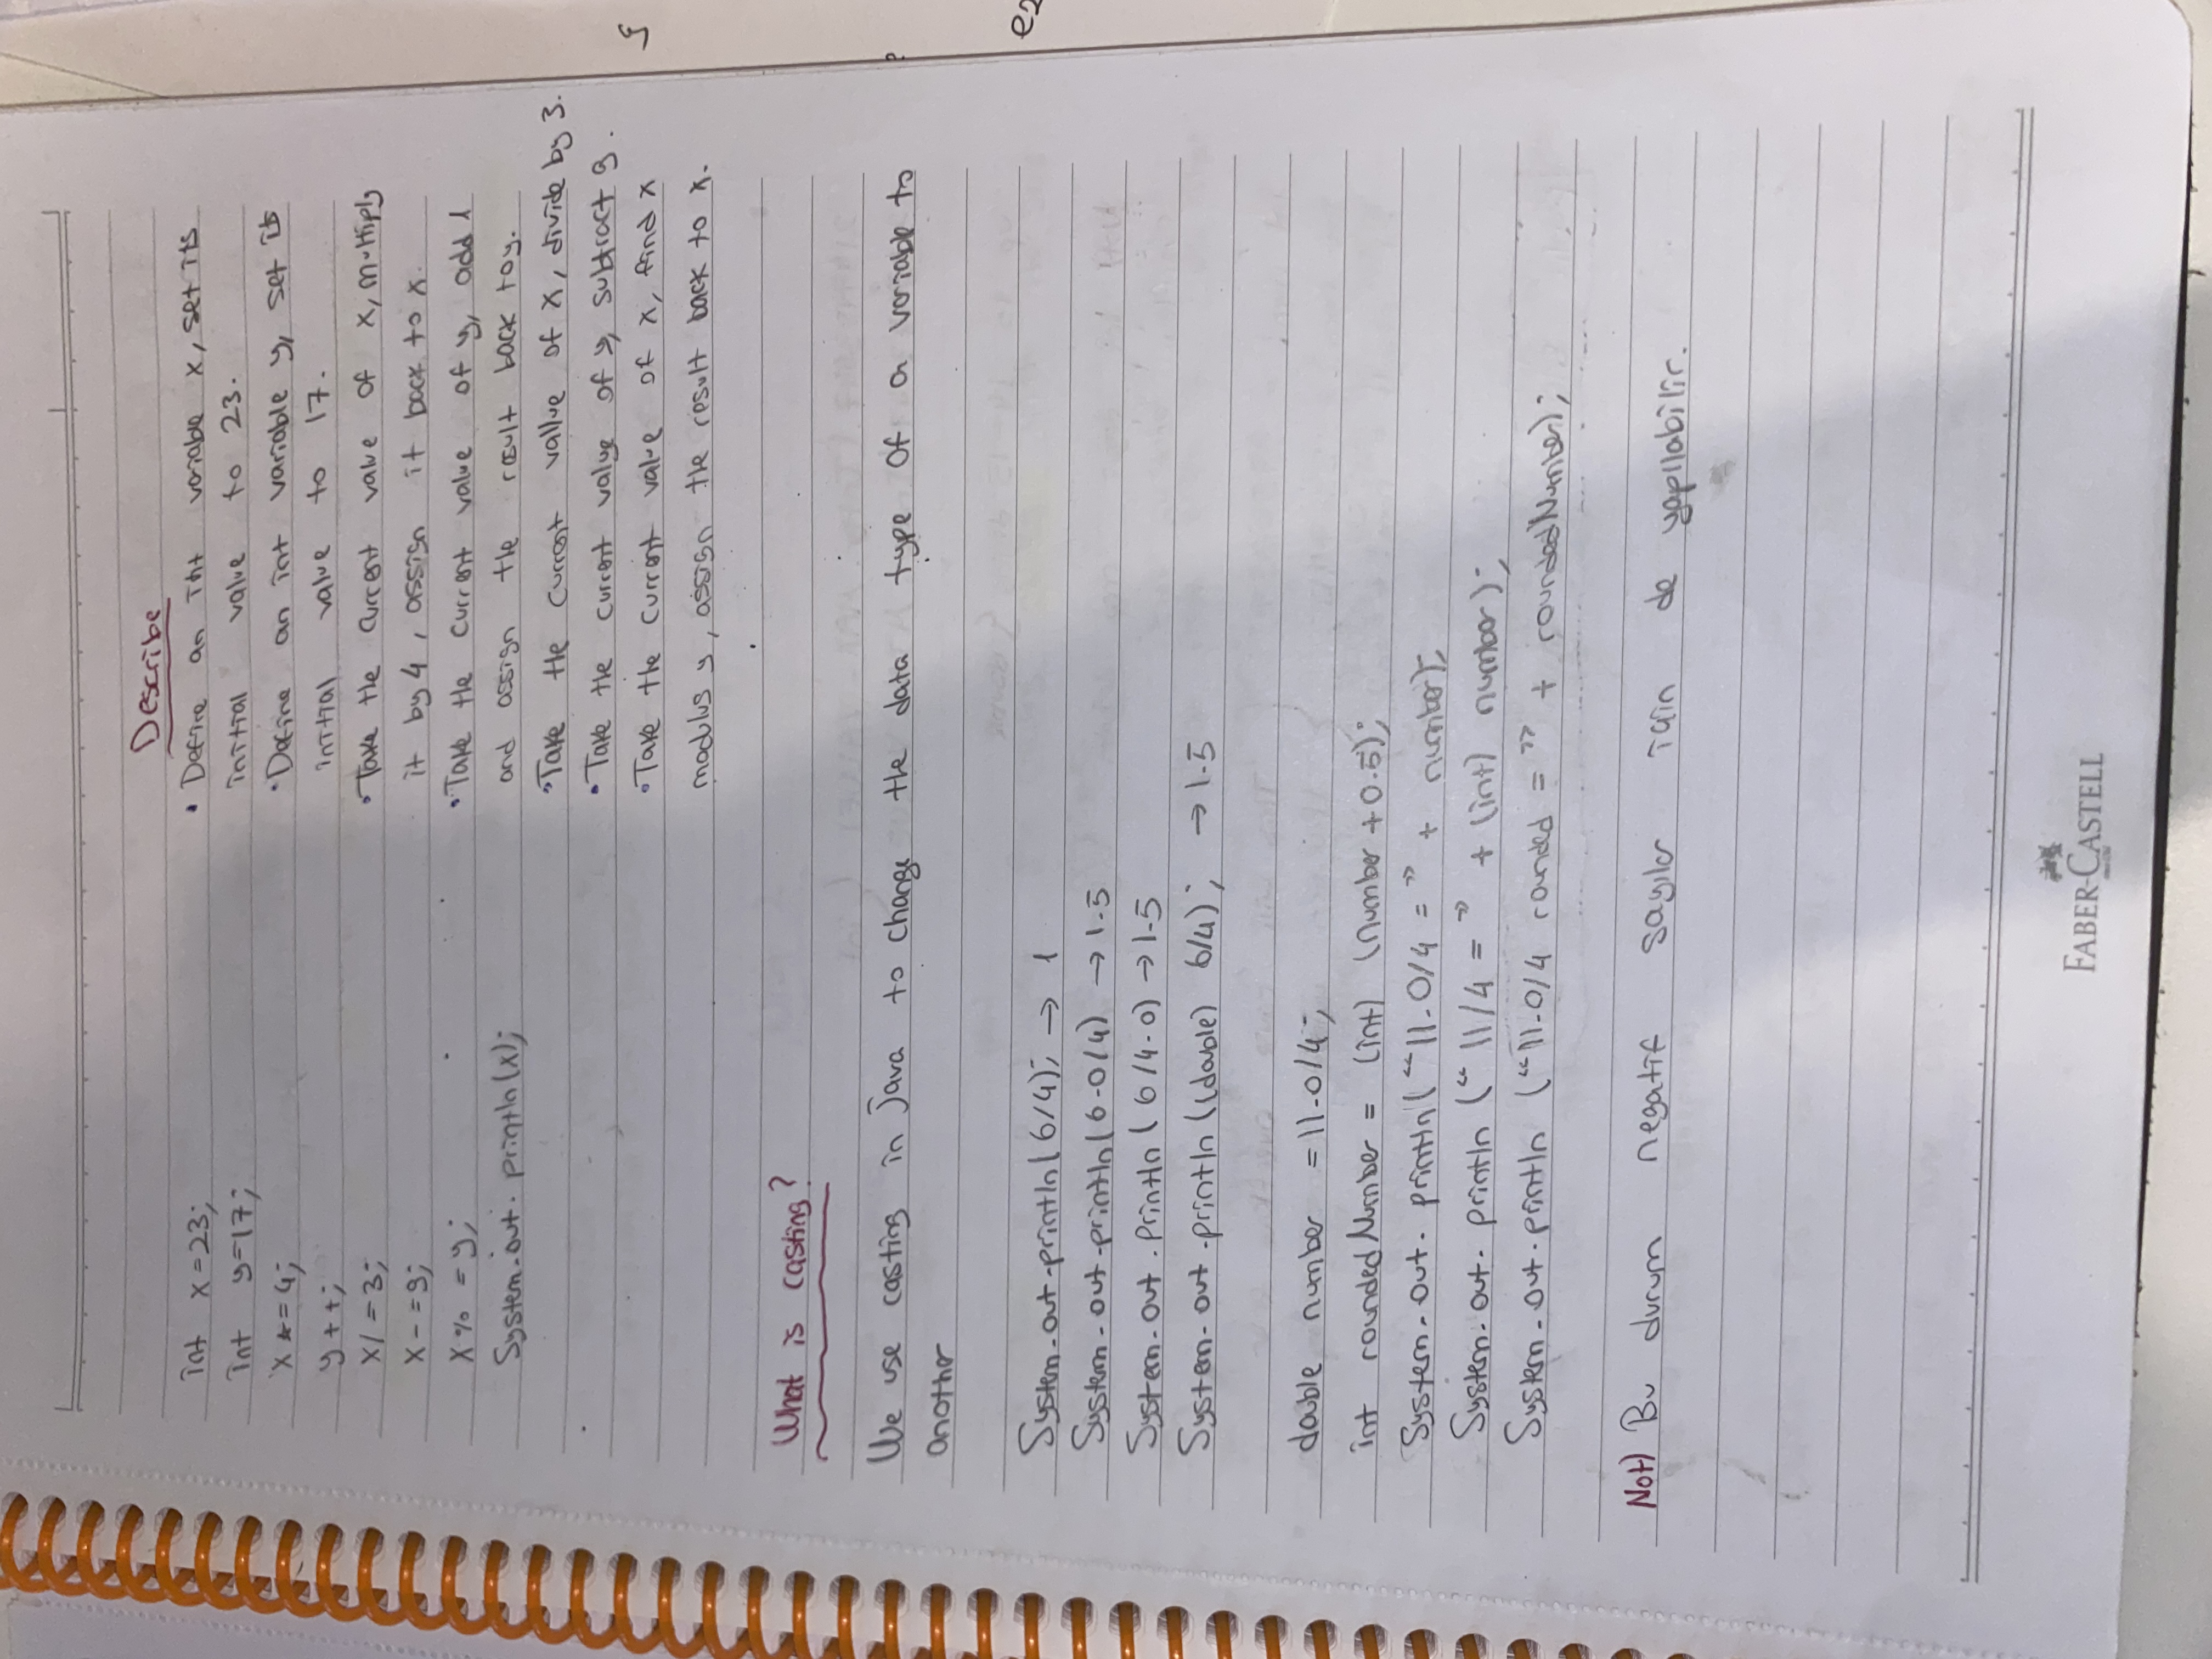 Describe
int x=23;
int y=17;
x *= 4;
y ++;
x/ =3;
x- =9;
x% =y;
System.out. println(x);
• Define an int variable x, set its
initial value to 23.
• Define an int variable y, set its
initial value to 17.
• Take the current value of x, multiply
it by 4, assign it back to x.
• Take the current value of y, add 1
and assign the result back to y.
• Take the current vallue of x, divide by 3.
• Take the current value of y, subtract 9.
• Take the current value of x, find x
modulus y, assign the result back to x.
What is casting?
We use casting in Java to change the data type of a variable to
another
System.out.println(6/4); → 1
System.out.println(6.0/4) → 1.5
System.out.println(6/4.0) → 1.5
System.out.println((double) 6/4); → 1.5
double number =11.0/4;
int roundedNumber = (int) (number +0.5);
System.out. println("11.0/4 = " + number);
System.out. println ("11/4 = " + (int) number);
System.out.println ("11.0/4 rounded = " + roundedNumber);
Not) Bu durum negatif sayılar için de yapılabilir.
FABER-CASTELL